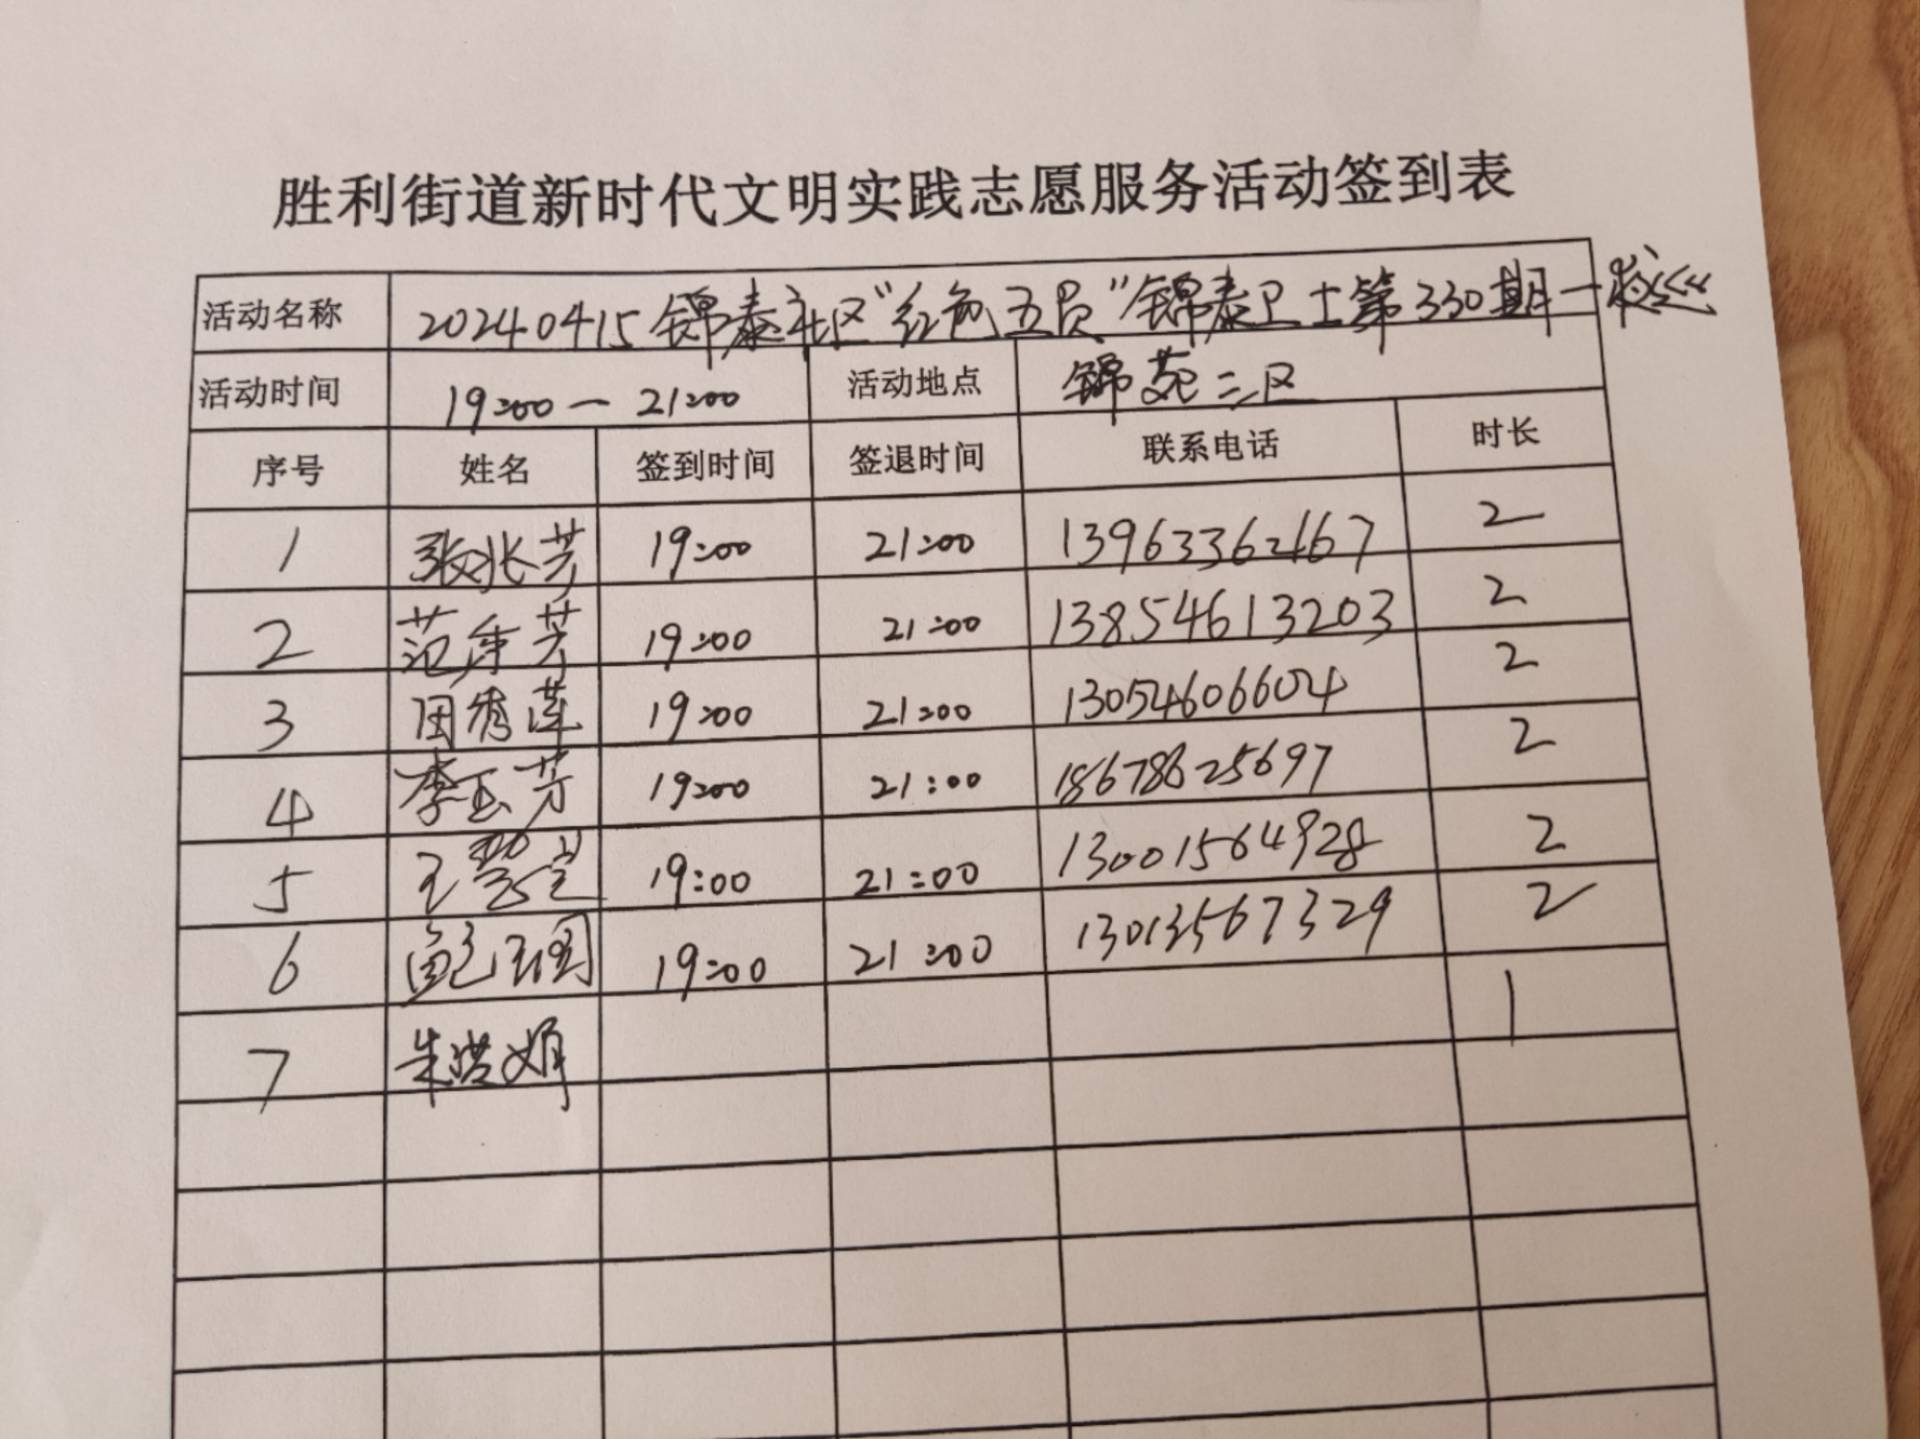 胜利街道新时代文明实践志愿服务活动签到表
活动名称 20240415锦泰社区“红色五员”锦泰卫士第330期一夜巡
活动时间 19:00一21:00 活动地点 锦苑二区
序号 姓名 签到时间 签退时间 联系电话 时长
1 张兆芳 19:00 21:00 13963362467 2
2 范年芳 19:00 21:00 13854613203 2
3 田秀莲 19:00 21:00 13054606604 2
4 李玉芳 19:00 21:00 18678625697 2
5 王 19:00 21:00 13001564928 2
6 鲍 19:00 21:00 13013567329 2
7 朱洪娟 1